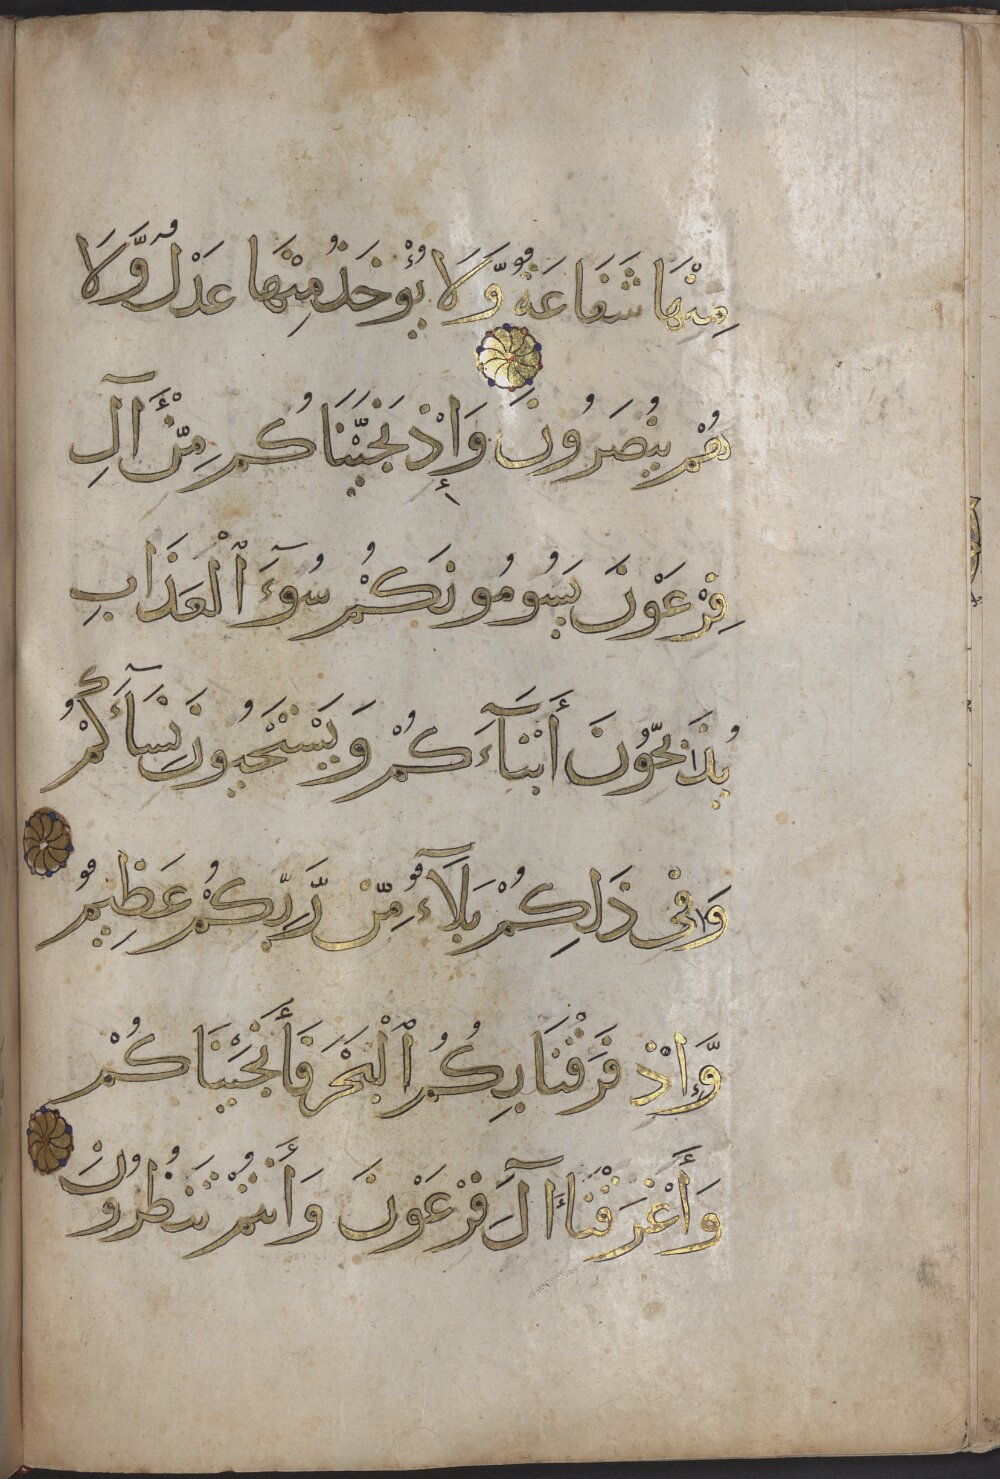 مِنْهَا شَفَاعَةٌ وَّلَا يُؤْخَذُ مِنْهَا عَدْلٌ وَّلَا
هُمْ يُنْصَرُونَ وَإِذْ نَجَّيْنَاكُم مِّنْ آلِ
فِرْعَوْنَ يَسُومُونَكُمْ سُوٓءَ ٱلْعَذَابِ
يُذَبِّحُونَ أَبْنَآءَكُمْ وَيَسْتَحْيُونَ نِسَآءَكُمْ
وَفِى ذَلِكُمْ بَلَآءٌ مِّن رَّبِّكُمْ عَظِيمٌ
وَّإِذْ فَرَقْنَا بِكُمُ ٱلْبَحْرَ فَأَنْجَيْنَاكُمْ
وَأَغْرَقْنَا آلَ فِرْعَوْنَ وَأَنْتُمْ تَنْظُرُونَ